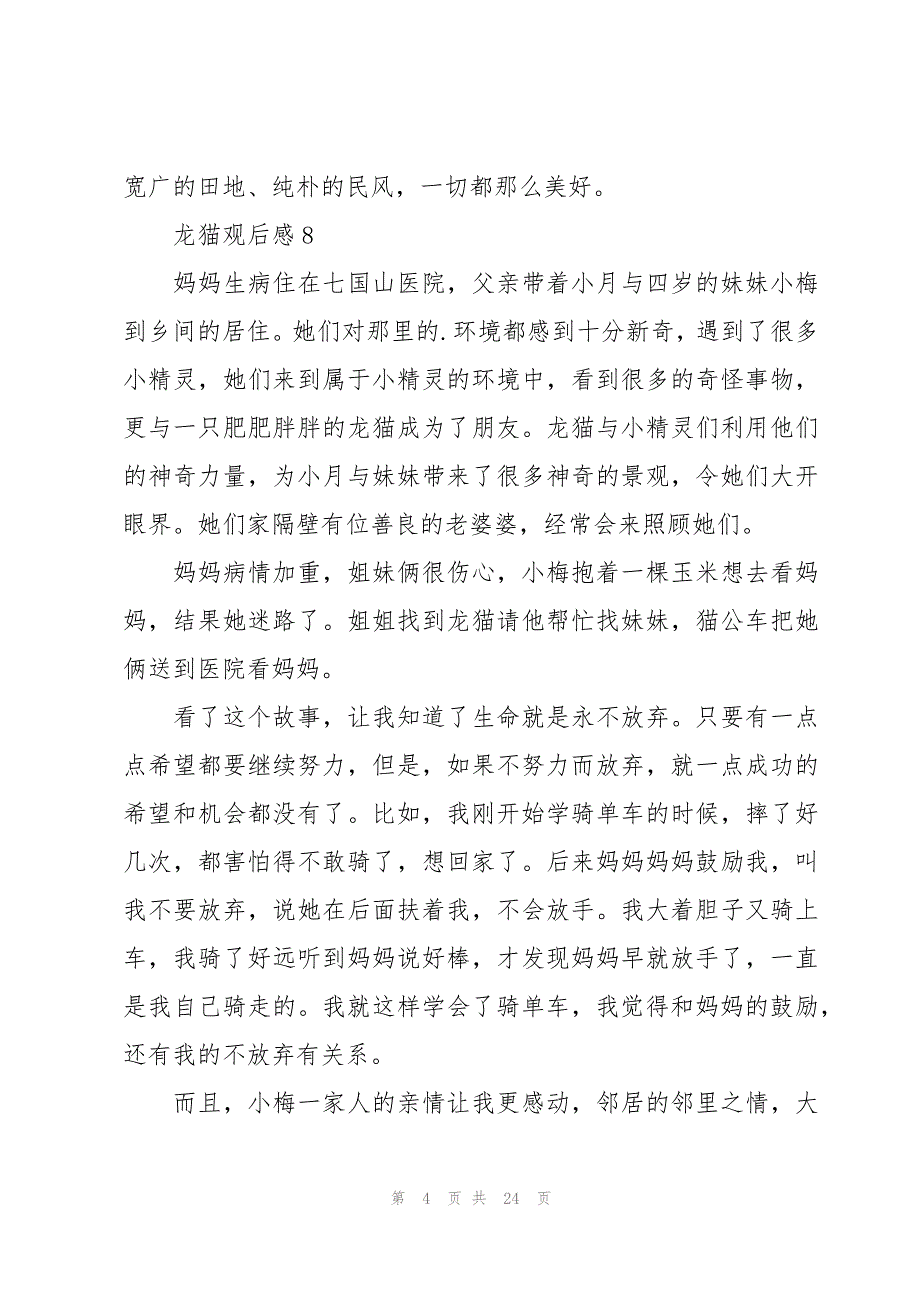 宽广的田地、纯朴的民风，一切都那么美好。
龙猫观后感8
妈妈生病住在七国山医院，父亲带着小月与四岁的妹妹小梅
到乡间的居住。她们对那里的.环境都感到十分新奇，遇到了很多
小精灵，她们来到属于小精灵的环境中，看到很多的奇怪事物，
更与一只肥肥胖胖的龙猫成为了朋友。龙猫与小精灵们利用他们
的神奇力量，为小月与妹妹带来了很多神奇的景观，令她们大开
眼界。她们家隔壁有位善良的老婆婆，经常会来照顾她们。
妈妈病情加重，姐妹俩很伤心，小梅抱着一棵玉米想去看妈
妈，结果她迷路了。姐姐找到龙猫请他帮忙找妹妹，猫公车把她
俩送到医院看妈妈。
看了这个故事，让我知道了生命就是永不放弃。只要有一点
点希望都要继续努力，但是，如果不努力而放弃，就一点成功的
希望和机会都没有了。比如，我刚开始学骑单车的时候，摔了好
几次，都害怕得不敢骑了，想回家了。后来妈妈妈妈鼓励我，叫
我不要放弃，说她在后面扶着我，不会放手。我大着胆子又骑上
车，我骑了好远听到妈妈说好棒，才发现妈妈早就放手了，一直
是我自己骑走的。我就这样学会了骑单车，我觉得和妈妈的鼓励，
还有我的不放弃有关系。
而且，小梅一家人的亲情让我更感动，邻居的邻里之情，大
第 4 页 共 24 页